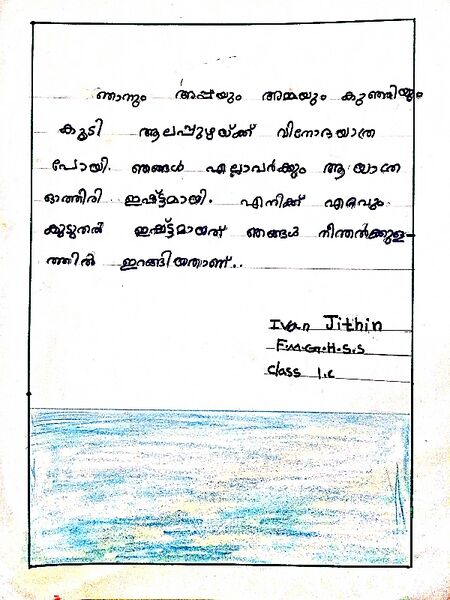 ഞാനും അപ്പയും അമ്മയും കുഞ്ഞിയും
കൂടി ആലപ്പുഴയ്ക്ക് വിനോദയാത്ര
പോയി. ഞങ്ങൾ എല്ലാവർക്കും ആ യാത്ര
ഒത്തിരി ഇഷ്ട്ടമായി. എനിക്ക് ഏറ്റവും
കൂടുതൽ ഇഷ്ട്ടമായത് ഞങ്ങൾ നീന്തൽക്കുള-
ത്തിൽ ഇറങ്ങിയതാണ്..
Ivan Jithin
F.M.G.H.S.S
Class 1.C